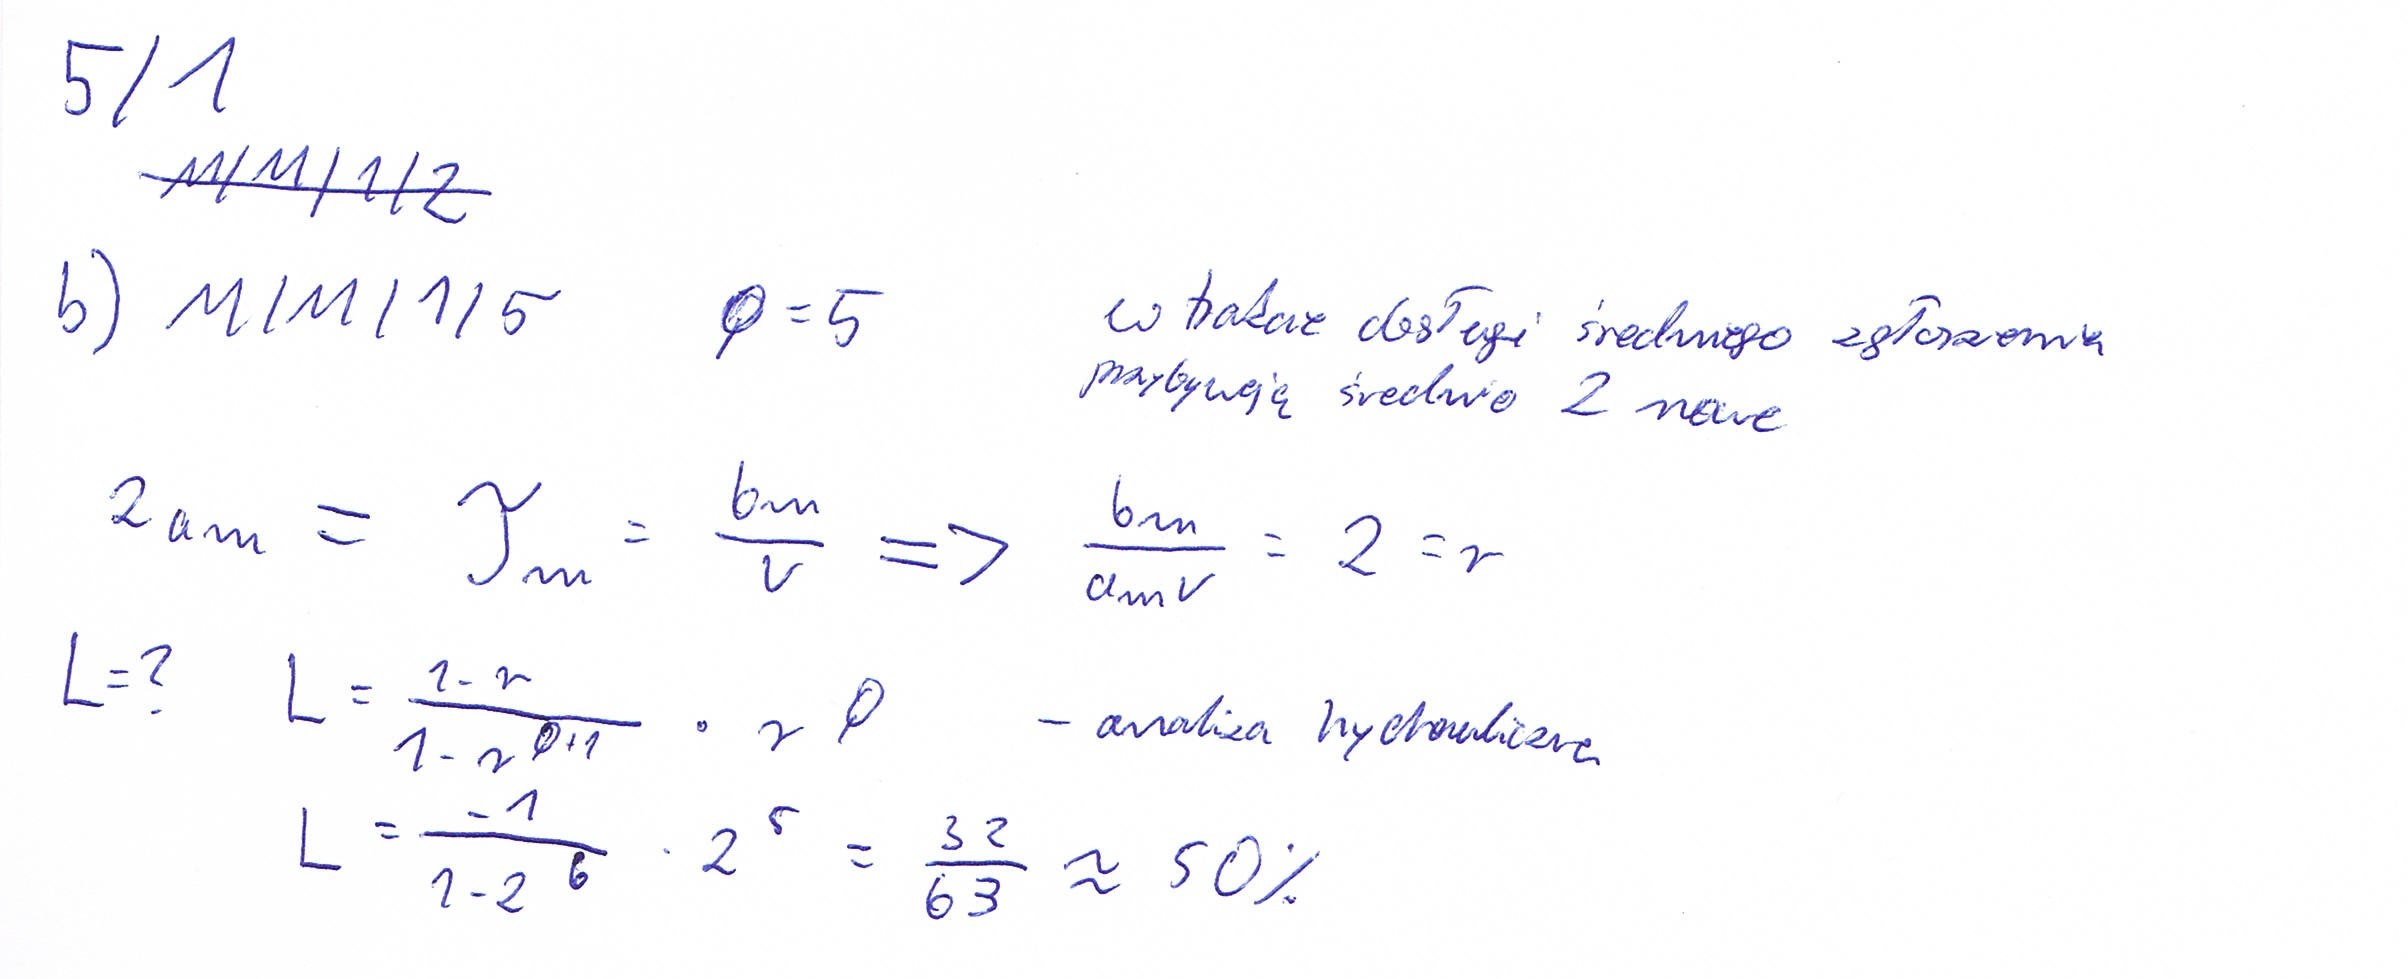 5/1
M/M/1/2
b) M/M/1/5 φ = 5 w trakcie obsługi średniego zgłoszenia
przybywają średnio 2 nowe
2 am = 𝒯m = bm/v => bm/(am v) = 2 = r
L = ? L = (1-r)/(1-r^(φ+1)) · r^φ - analiza hydrauliczna
L = (-1)/(1-2^6) · 2^5 = 32/63 ≈ 50%